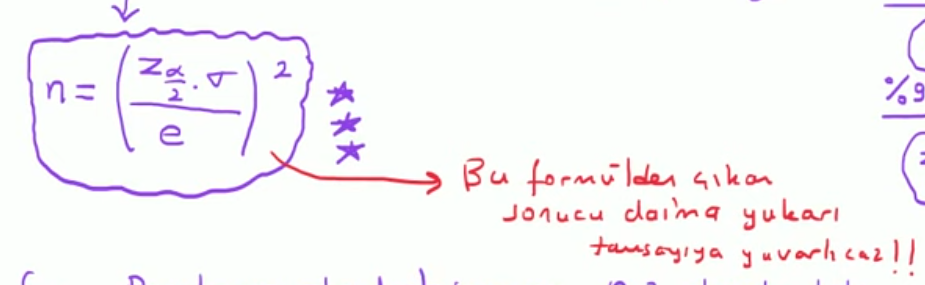 n = (z_{α/2} · σ / e)^2
Bu formülden çıkan
sonucu daima yukarı
tamsayıya yuvarlıcaz!!